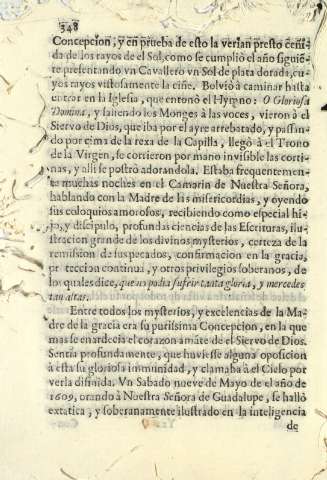 348
Concepcion, y en prueba de esto la verian presto ceñi-
da de los rayos de el Sol, como se cumpliò el año siguiē-
te presentando vn Cavallero vn Sol de plata dorada, cu-
yos rayos vistosamente la ciñe. Bolviò à caminar hasta
entrar en la Iglesia, que entonò el Hymno: O Gloriosa
Domina, y saliendo los Monges à las voces, vieron ò el
Siervo de Dios, que iba por el ayre arrebatado, y passan-
do por cima de la rexa de la Capilla, llegò à el Trono
de la Virgen, se corrieron por mano invisible las corti-
nas, y alli se postrò adorandola. Estaba frequentemen-
te muchas noches en el Camarin de Nuestra Señora,
hablando con la Madre de las misericordias, y oyendo
sus coloquios amorosos, recibiendo como especial hi-
jo, y discipulo, profundas ciencias de las Escrituras, ilu-
stracion grande de los divinos mysterios, certeza de la
remission de sus pecados, confirmacion en la gracia,
proteccion continua, y otros privilegios soberanos, de
los quales dice, que no podia sufrir tanta gloria, y mercedes
tan altas.
Entre todos los mysterios, y excelencias de la Ma-
dre de la gracia era su purissima Concepcion, en la que
mas se enardecia el corazon amāte de el Siervo de Dios.
Sentia profundamente, que huviesse alguna oposicion
à esta su gloriosa immunidad, y clamaba à el Cielo por
verla difinida. Vn Sabado nueve de Mayo de el año de
1609, orando à Nuestra Señora de Guadalupe, se hallò
extatica; y soberanamente ilustrado en la inteligencia
de